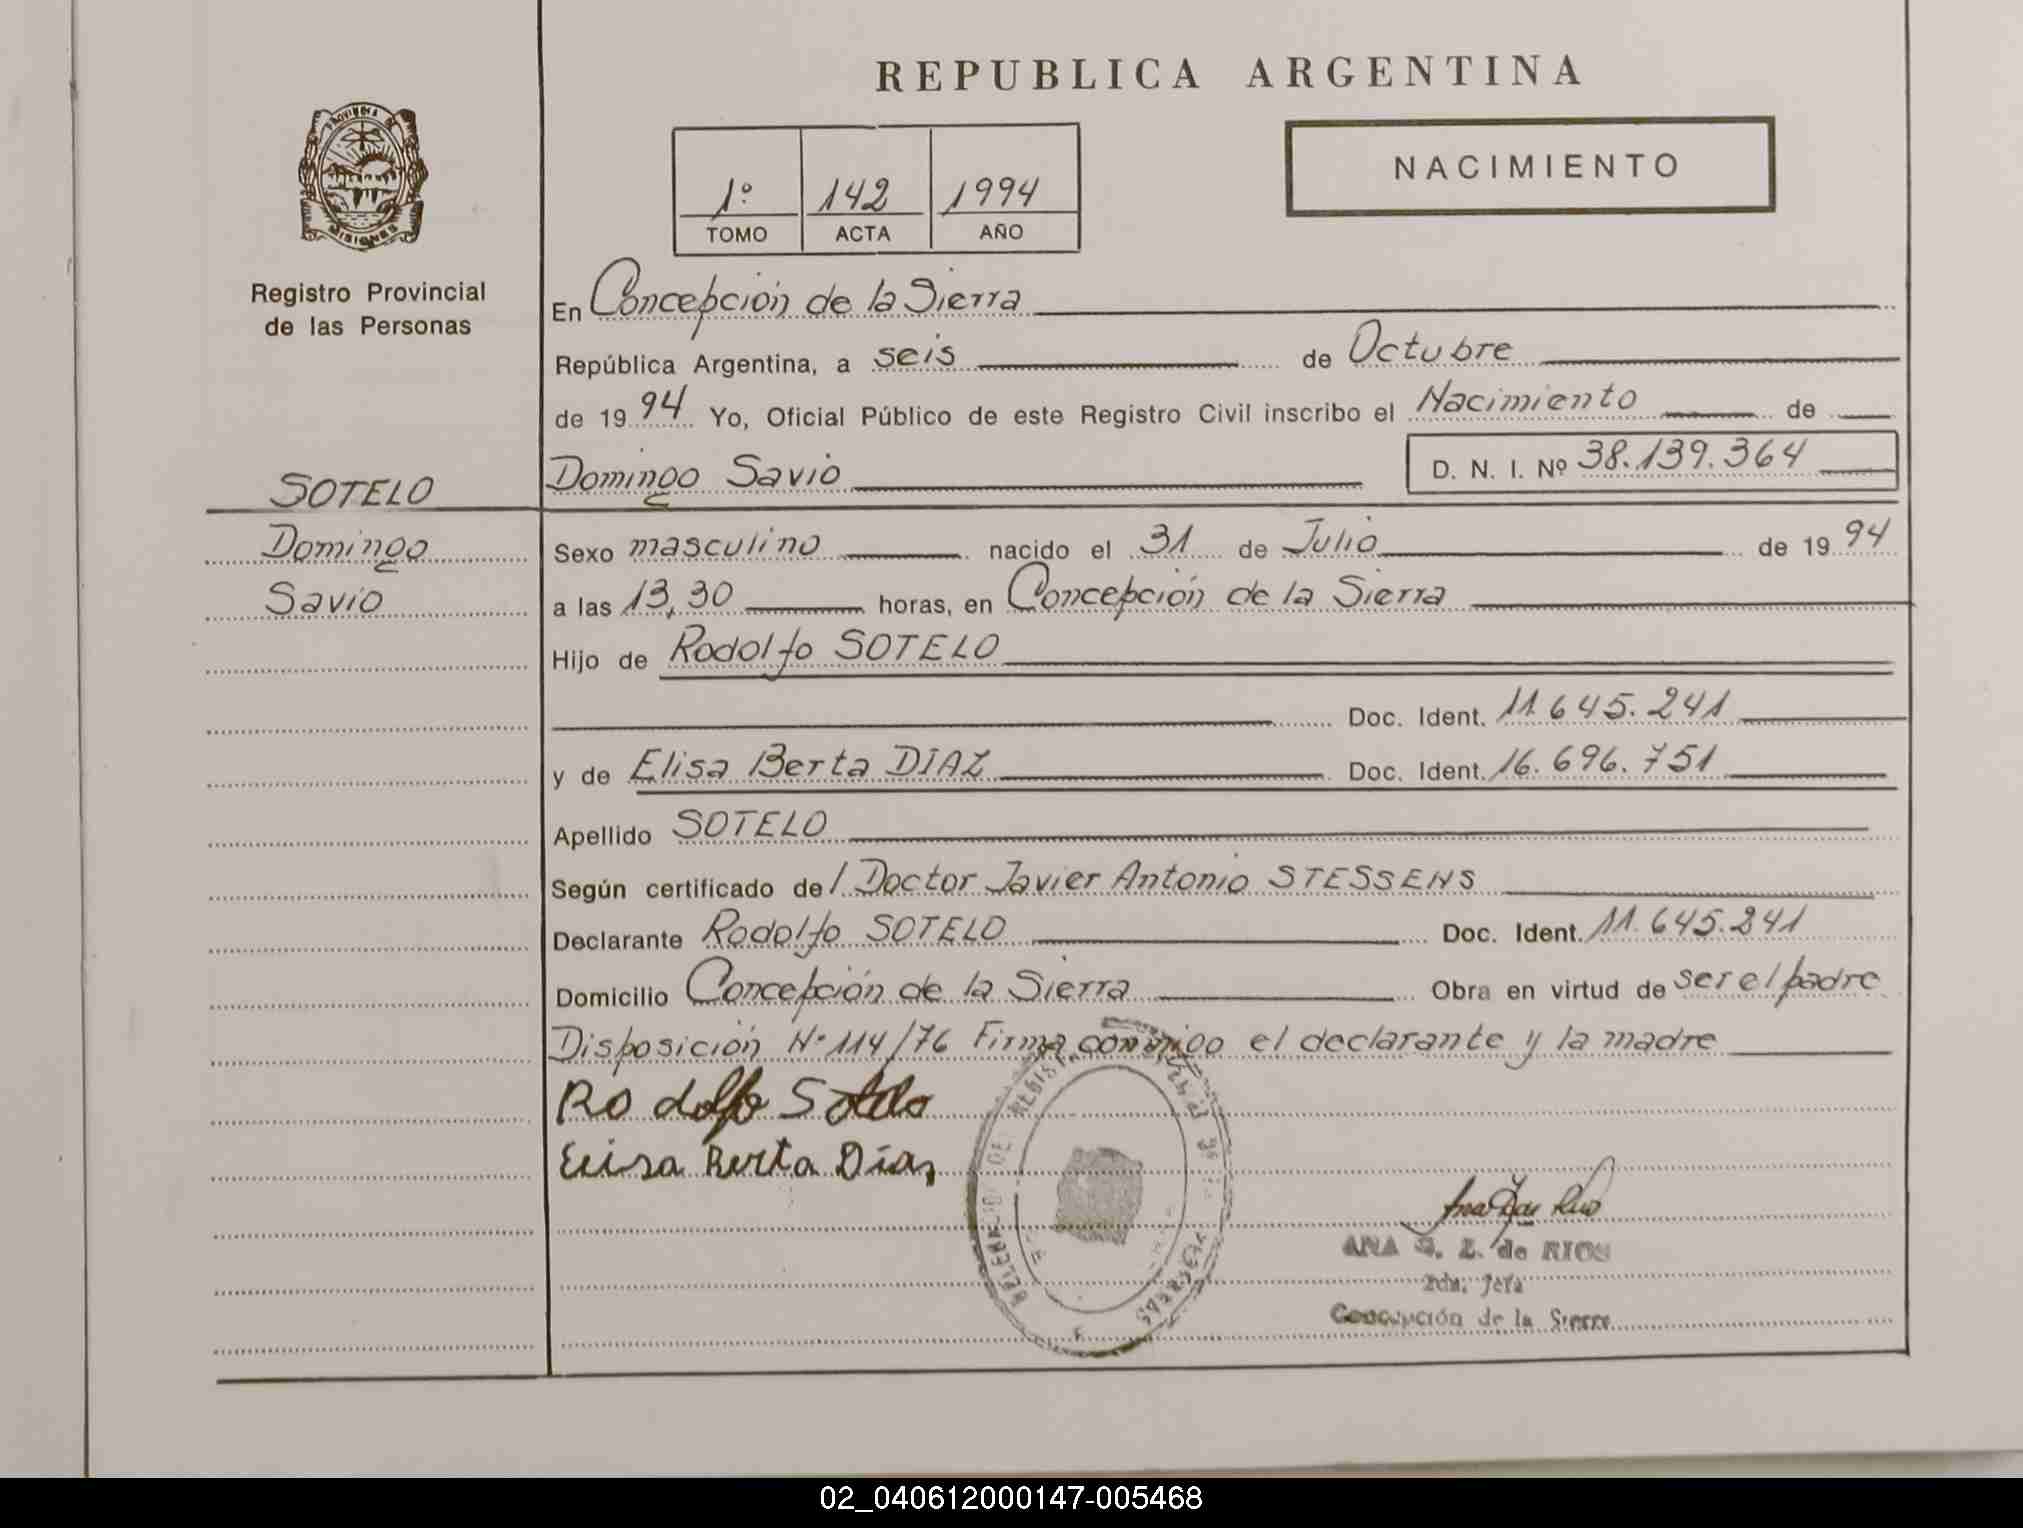 REPUBLICA ARGENTINA
PROVINCIA DE
MISIONES
Registro Provincial
de las Personas
1º 142 1994
TOMO ACTA AÑO
NACIMIENTO
En Concepción de la Sierra
República Argentina, a seis de Octubre
de 1994 Yo, Oficial Público de este Registro Civil inscribo el Nacimiento de
Domingo Savio D. N. I. Nº 38.139.364
SOTELO
Domingo
Savio
Sexo masculino nacido el 31 de Julio de 1994
a las 13,30 horas, en Concepción de la Sierra
Hijo de Rodolfo SOTELO
Doc. Ident. 11.645.241
y de Elisa Berta DÍAZ Doc. Ident. 16.696.751
Apellido SOTELO
Según certificado de/ Doctor Javier Antonio STESSENS
Declarante Rodolfo SOTELO Doc. Ident. 11.645.241
Domicilio Concepción de la Sierra Obra en virtud de ser el padre
Disposición Nº 114/76 Firma conmigo el declarante y la madre
Rodolfo Sotelo
Elisa Berta Díaz
ANA de RIOS
Jefa
Concepción de la Sierra
02_040612000147-005468